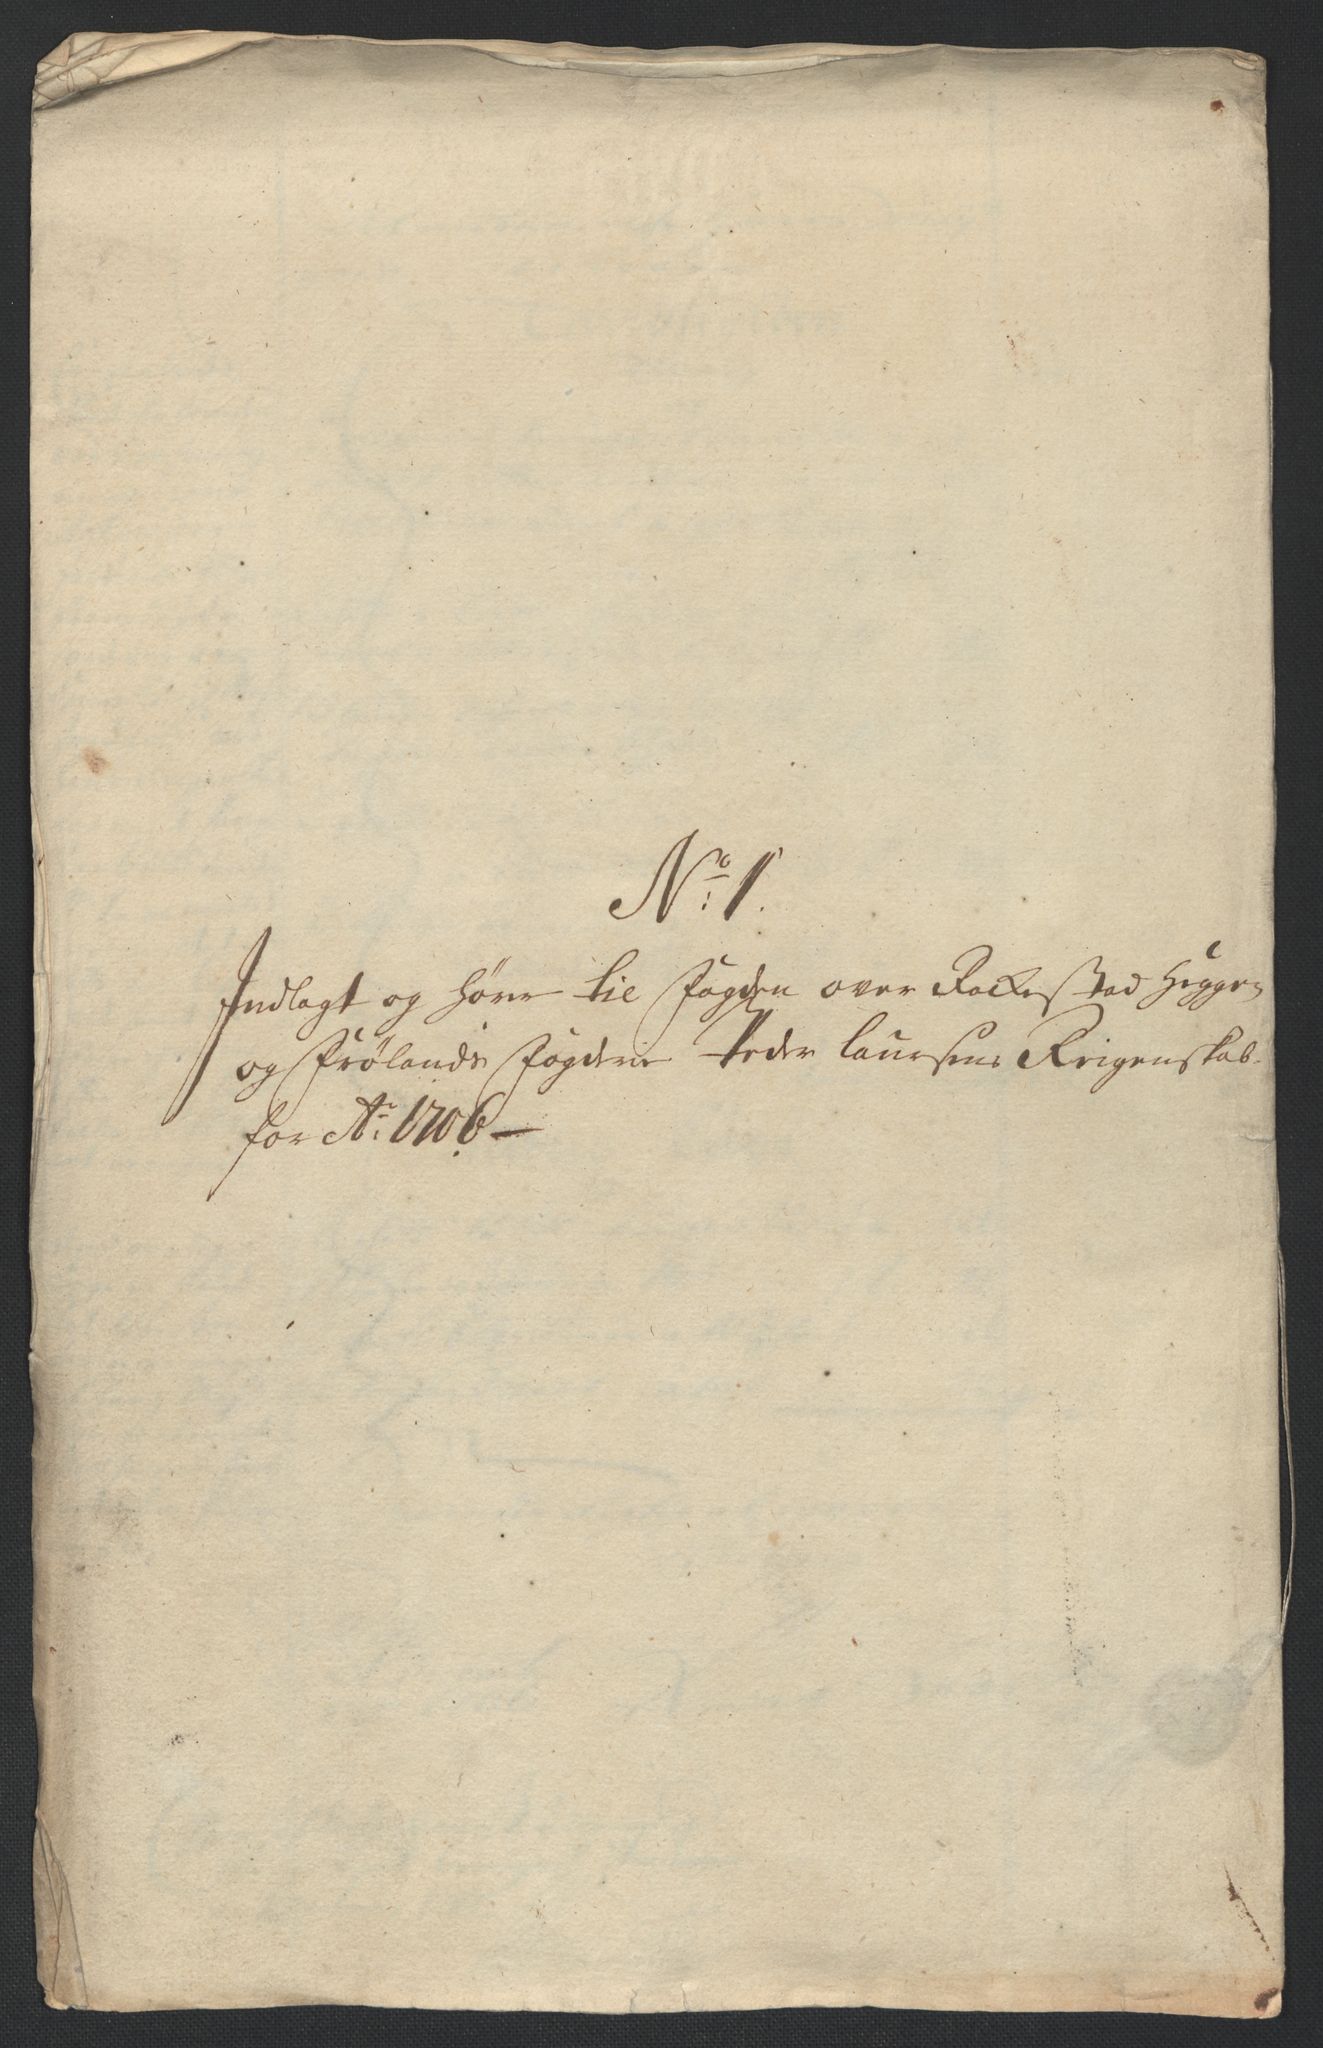 No: 1.
Indlagt og hører til Fogden over Rackestad Heggen
og Frølands Fogderie Peder Laursens Reigenskab
for Ao: 1706